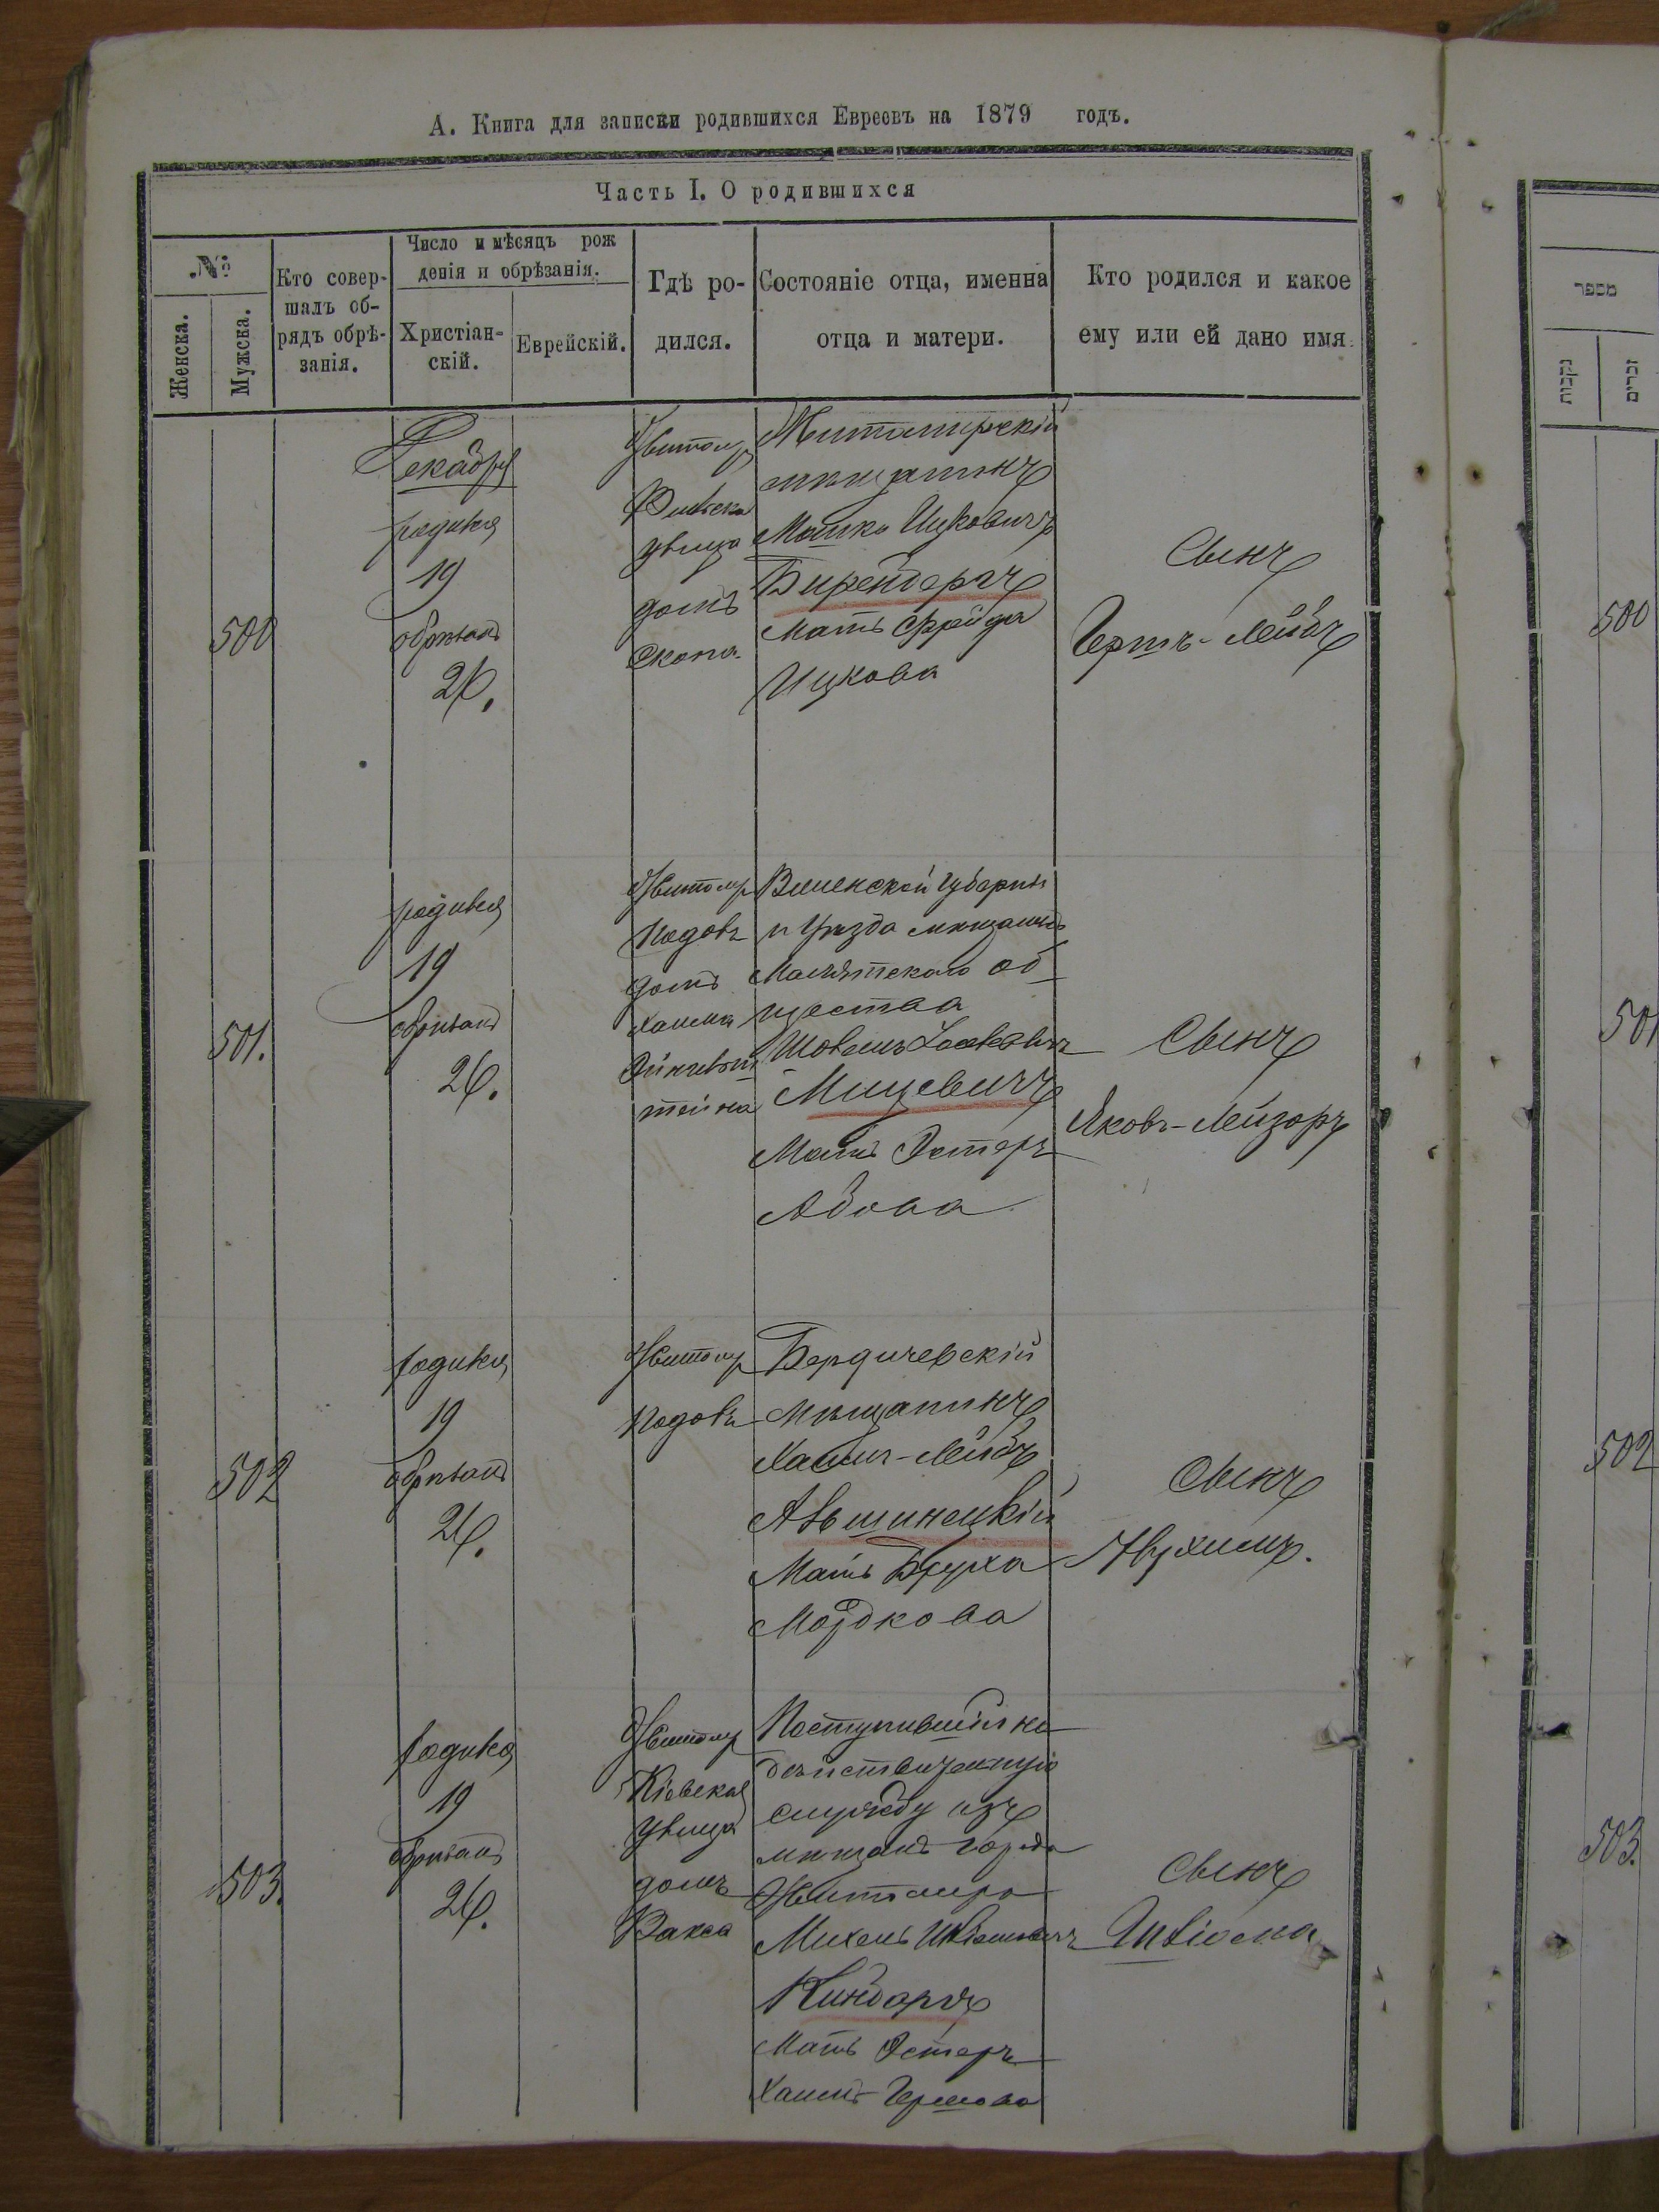 А. Книга для записки родившихся Евреевъ на 1879 годъ.
Часть I. О родившихся
№
Женска.
Мужска.
Кто совер-
шалъ об-
рядъ обрѣ-
занія.
Число и мѣсяцъ рож
денія и обрѣзанія.
Христіан-
скій.
Еврейскій.
Гдѣ ро-
дился.
Состояніе отца, именна
отца и матери.
Кто родился и какое
ему или ей дано имя.
500
Декабря
родился
19
обрѣзанъ
26.
Житомир
улица
домъ
Скопа
Житомирскій
мѣщанинъ
Мошко Ицковичъ
Биренбергъ
Мать Фрейда
Ицкова
Сынъ
Гершъ-Лейбъ
501.
родился
19
обрѣзанъ
26.
Житомир
Подовъ
домъ
Хаима
тейна
Виленской Губерніи
и Уѣзда мѣщанинъ
Малятскаго об-
щества
Шовель
Мицевичъ
Мать Эстеръ
Абова
Сынъ
Яковъ-Лейзоръ
502
родился
19
обрѣзанъ
26.
Житомир
Подовъ
Бердичевскій
мѣщанинъ
Хаимъ-Лейбъ
Авшинецкій
Мать Бруха
Мордкова
Сынъ
Нухимъ.
503.
родился
19
обрѣзанъ
26.
Житомир
Кіевская
улица
домъ
Вакса
Поступившій на
дѣйствительную
службу изъ
мѣщанъ города
Житомира
Михель Шліомовичъ
Киндоръ
Мать Эстеръ
Хаимъ-Гершова
Сынъ
Шліома
מספר
נקבות
זכרים
500
501
502
503.